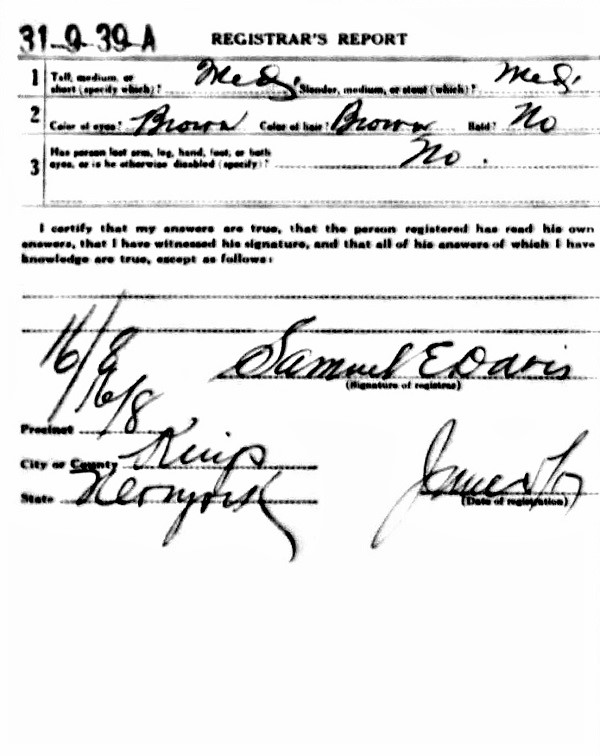 31-9-39-A REGISTRAR'S REPORT
1 Tall, medium, or short (specify which)? Med. Slender, medium, or stout (which)? Med.
2 Color of eyes? Brown Color of hair? Brown Bald? No
3 Has person lost arm, leg, hand, foot, or both eyes, or is he otherwise disabled (specify)? No.
I certify that my answers are true, that the person registered has read his own
answers, that I have witnessed his signature, and that all of his answers of which I have
knowledge are true, except as follows:
16/8
Samuel E Davis
(Signature of registrar)
16/8
Precinct
City or County Kings
State New York
June
(Date of registration)